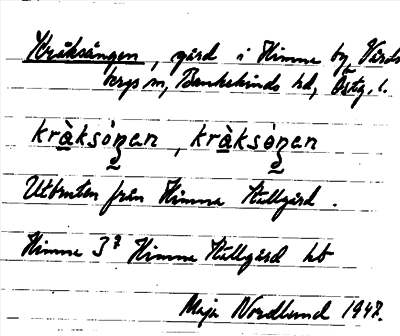 Kråksången, gård i Himna by, Vårds-
bergs sn, Bankekinds hd, Östg. l.
kràksòŋen, kràksòŋen
Utbruten från Himna Stillgård.
Himna 3² Himna Stillgård hb
Maja Nordlund 1947.